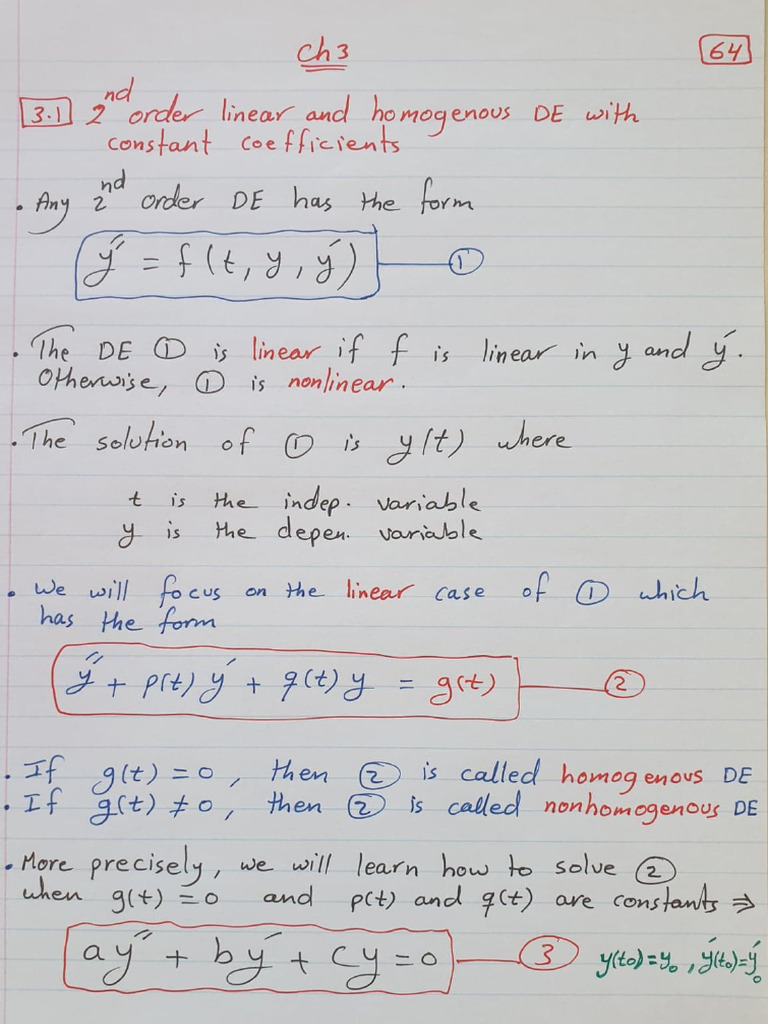 Ch 3
64
3.1 2nd order linear and homogenous DE with
constant coefficients
• Any 2nd order DE has the form
y″ = f(t, y, y′) ①
• The DE ① is linear if f is linear in y and y′.
Otherwise, ① is nonlinear.
• The solution of ① is y(t) where
t is the indep. variable
y is the depen. variable
• We will focus on the linear case of ① which
has the form
y″ + p(t) y′ + q(t) y = g(t) ②
• If g(t) = 0, then ② is called homogenous DE
• If g(t) ≠ 0, then ② is called nonhomogenous DE
• More precisely, we will learn how to solve ②
when g(t) = 0 and p(t) and q(t) are constants ⇒
ay″ + by′ + cy = 0 ③ y(t₀) = y₀, y′(t₀) = y′₀